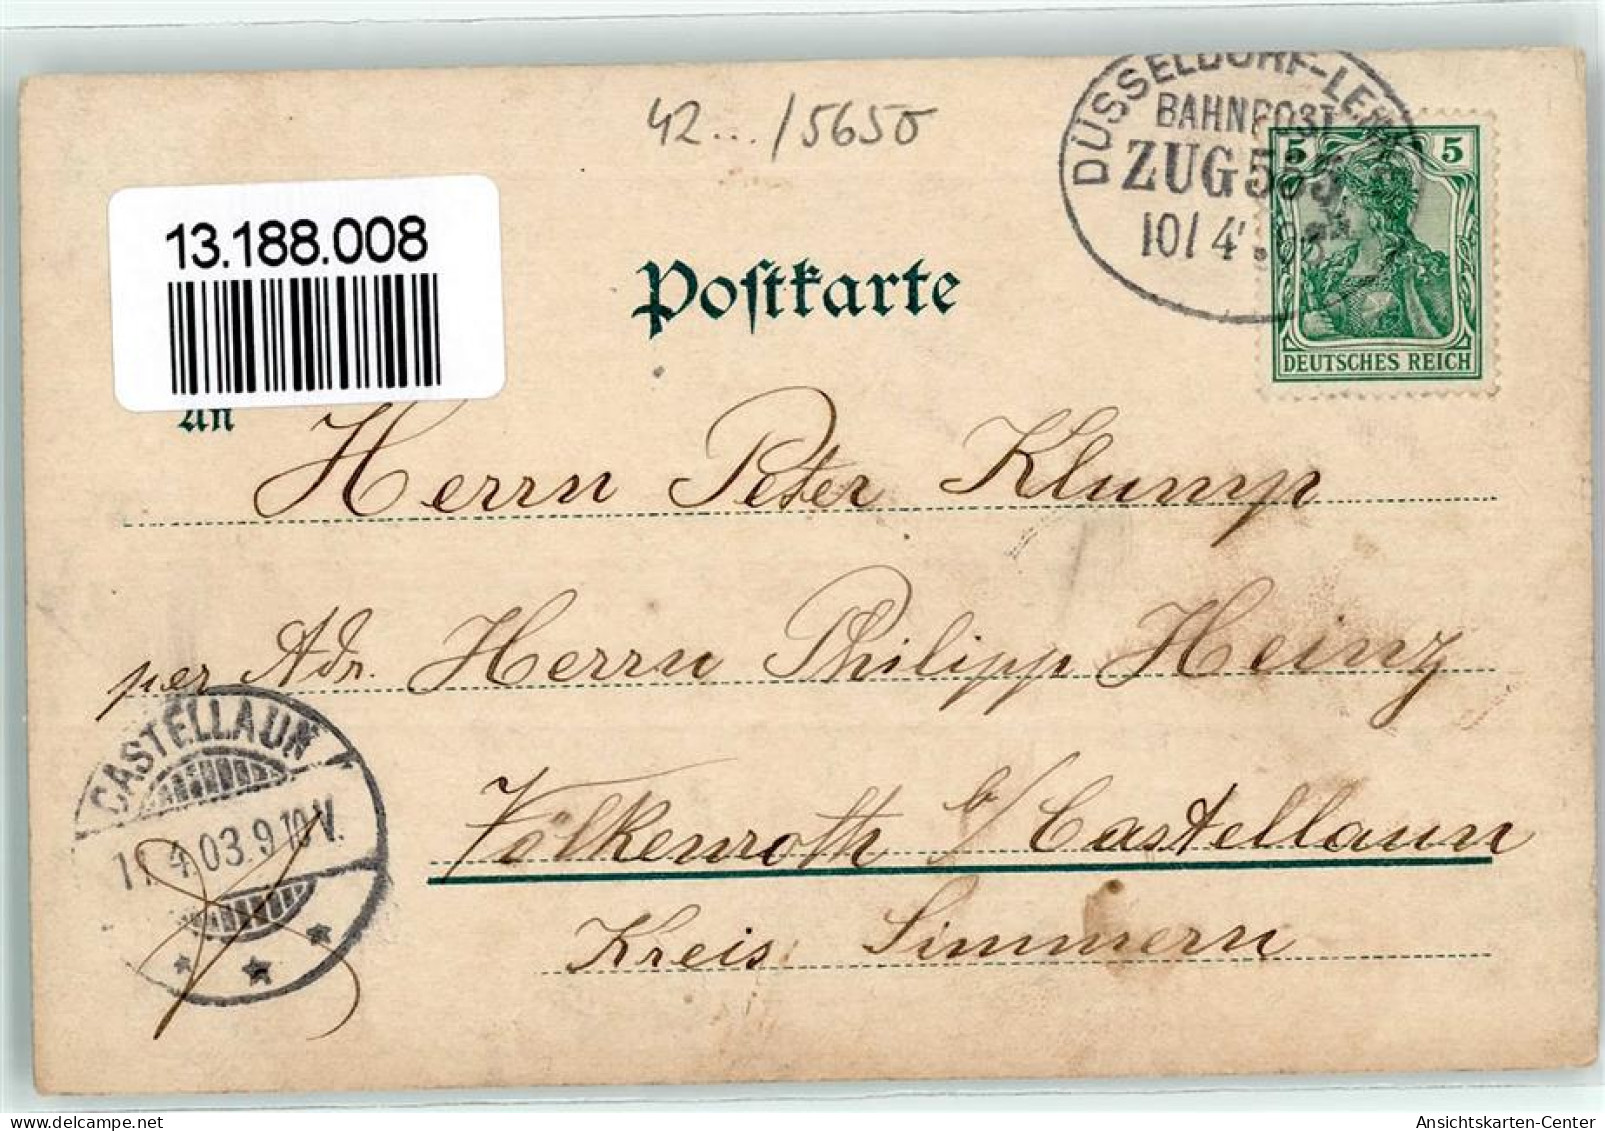 42... /5650
DÜSSELDORF-
BAHNPOST
ZUG
10/4 .03
5 5
DEUTSCHES REICH
13.188.008
Postkarte
An
Herrn Peter Klump
per Adr. Herrn Philipp Heinz
Völkenroth b/Castellaun
Kreis Simmern
CASTELLAUN
11.4.03.9-10V.
Ansichtskarten-Center